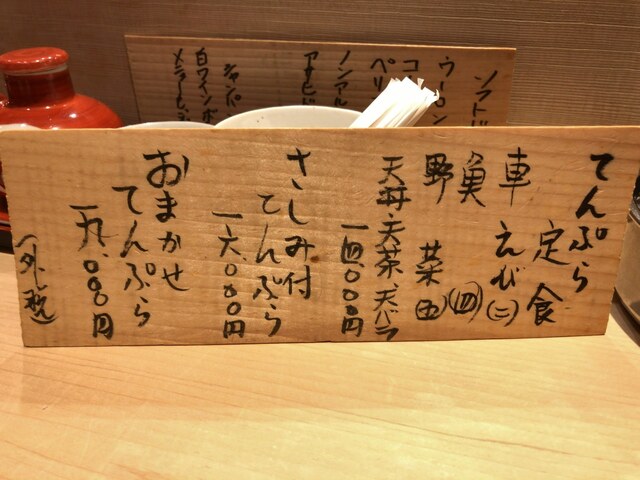 てんぷら
定食
車えび(二)
魚(四)
野菜(五)
天丼、天茶、天バラ
一四、〇〇〇円
さしみ付
てんぷら
一六、〇〇〇円
おまかせ
てんぷら
一九、〇〇〇円
(外税)
ソフトド
ウーロン
コー
ペリ
ノンアル
アサヒド
シャンパ
白ワインボ